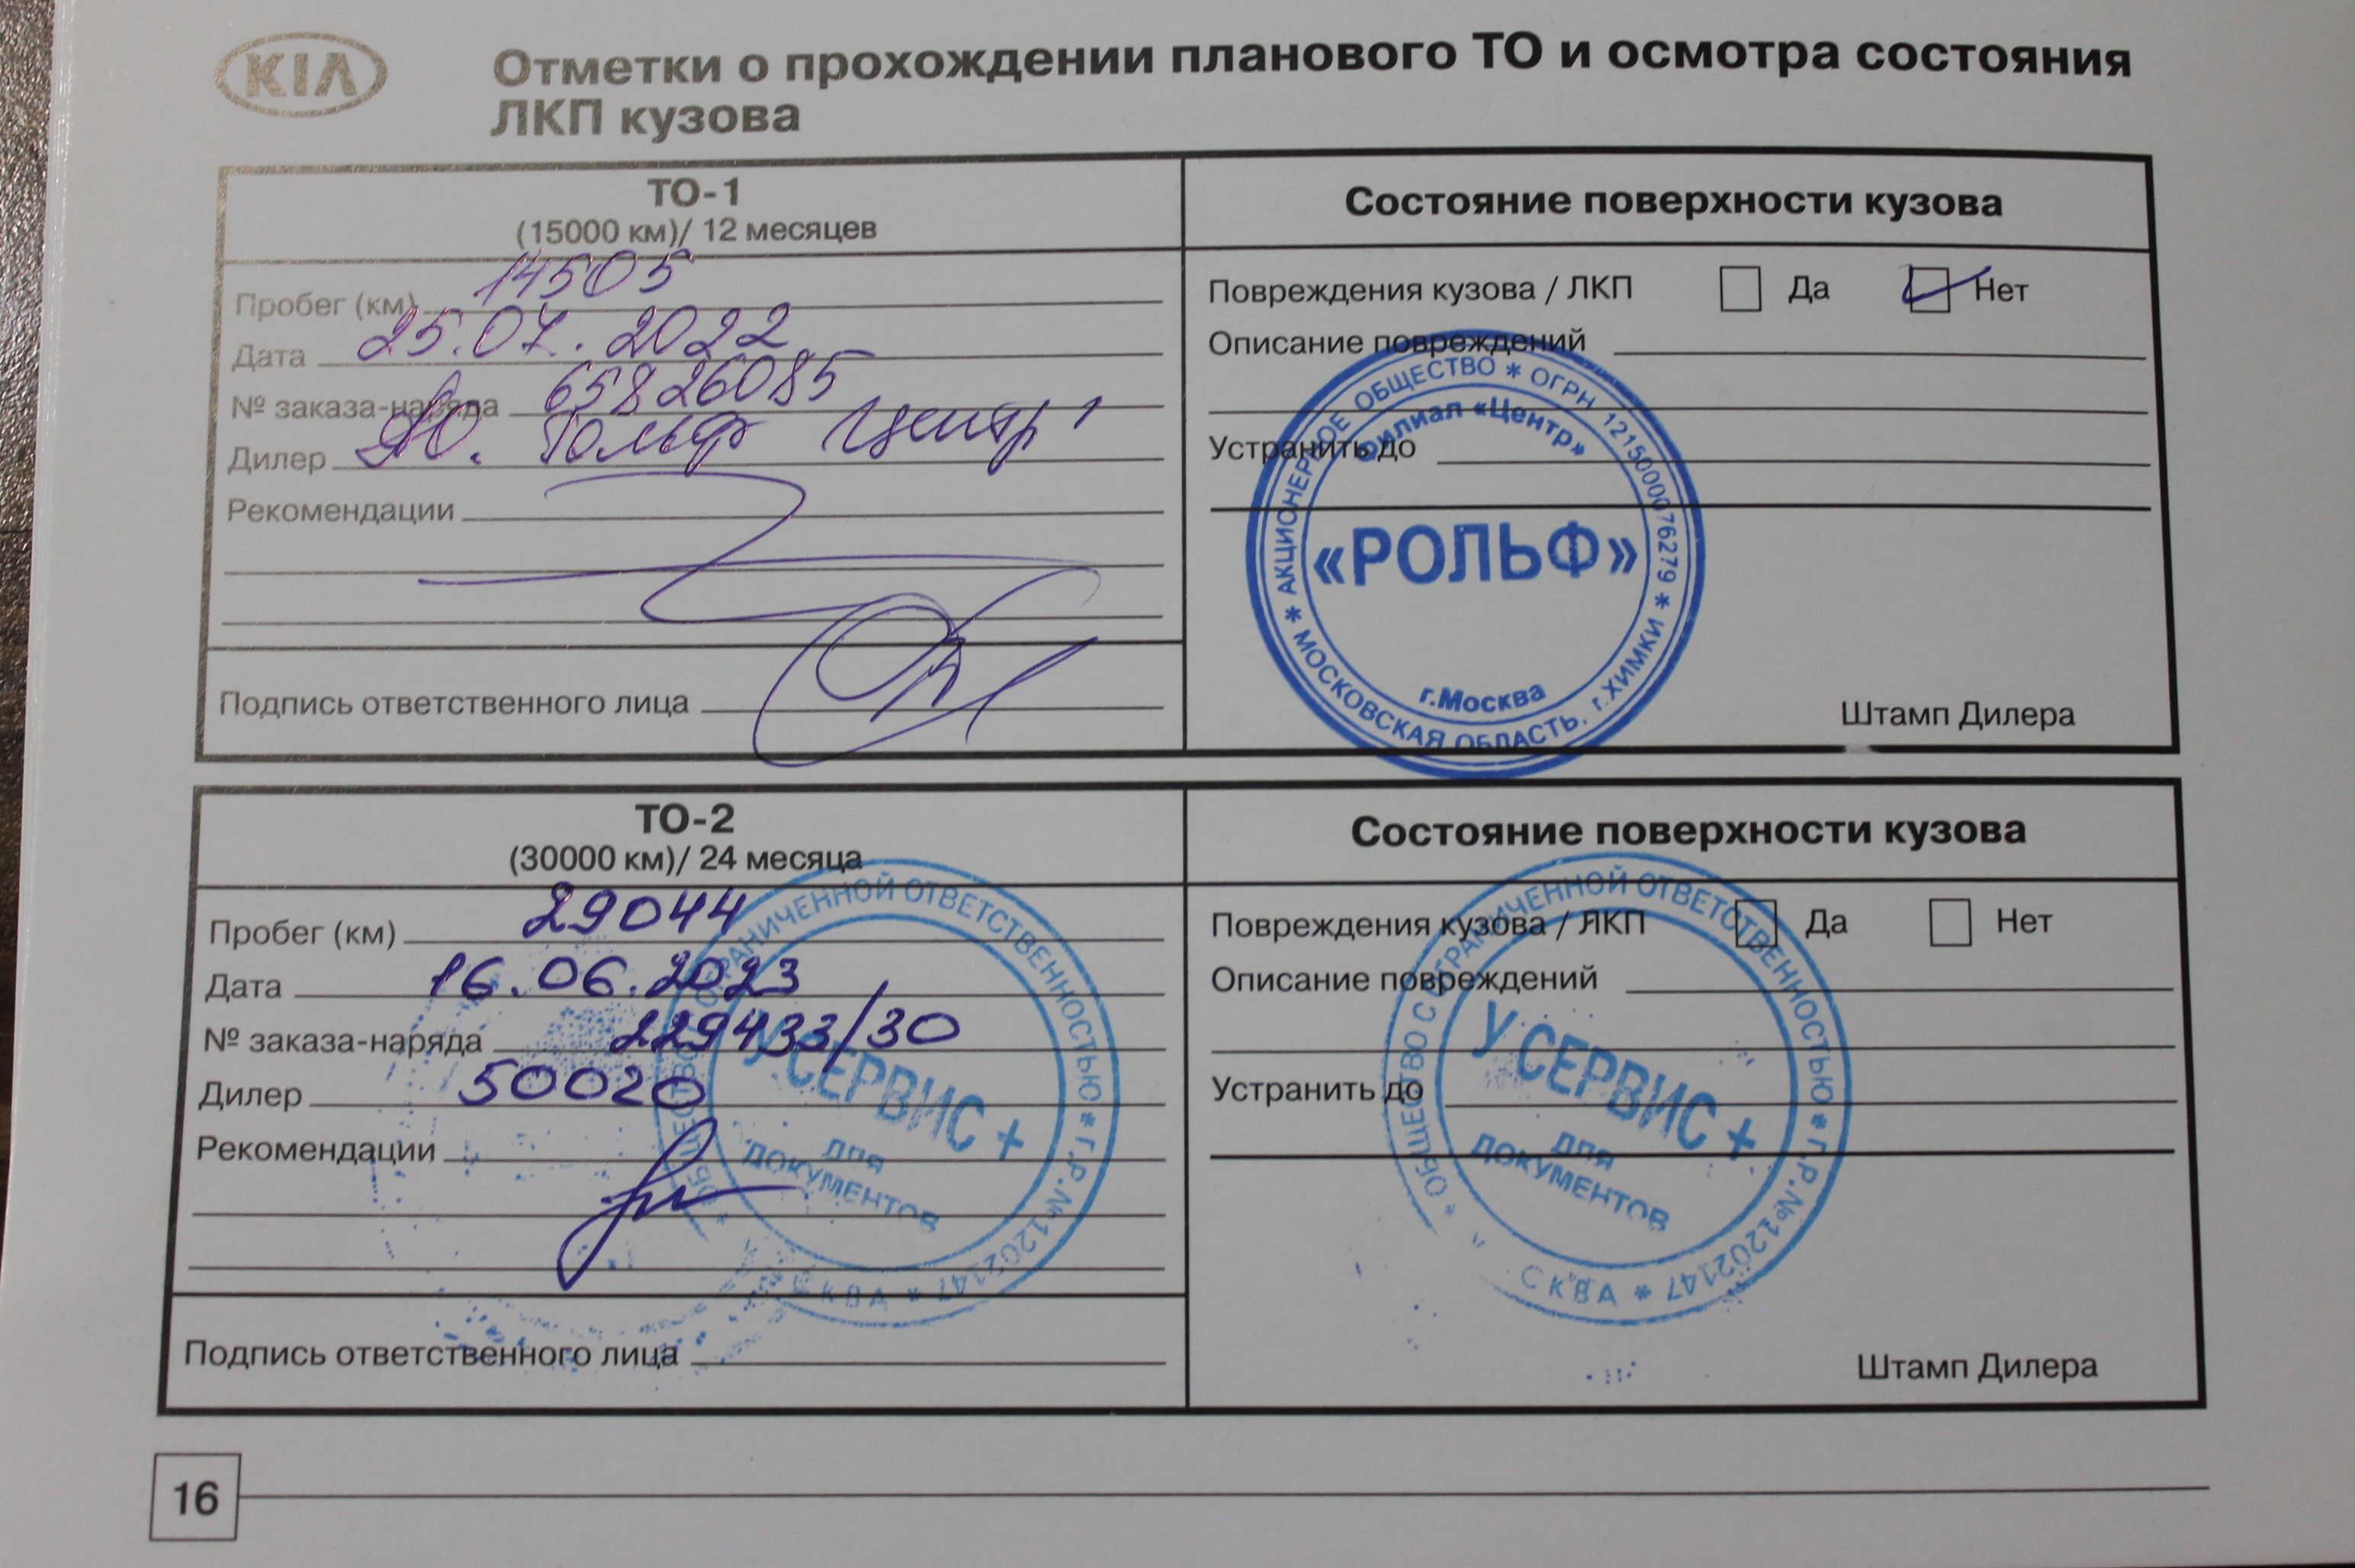 KIA
Отметки о прохождении планового ТО и осмотра состояния
ЛКП кузова
ТО-1
(15000 км)/ 12 месяцев
Пробег (км) 14505
Дата 25.07.2022
№ заказа-наряда 65826085
Дилер Рольф Центр
Рекомендации
Подпись ответственного лица
Состояние поверхности кузова
Повреждения кузова / ЛКП Да Нет
Описание повреждений
Устранить до
* АКЦИОНЕРНОЕ ОБЩЕСТВО * ОГРН 1215000076279 *
МОСКОВСКАЯ ОБЛАСТЬ, г.ХИМКИ
Филиал «Центр»
«РОЛЬФ»
г.Москва
Штамп Дилера
ТО-2
(30000 км)/ 24 месяца
Пробег (км) 29044
Дата 16.06.2023
№ заказа-наряда 229433/30
Дилер 50020
Рекомендации
Подпись ответственного лица
ОБЩЕСТВО С ОГРАНИЧЕННОЙ ОТВЕТСТВЕННОСТЬЮ * Г.Р.№1202147 *
У СЕРВИС +
ДЛЯ
ДОКУМЕНТОВ
Состояние поверхности кузова
Повреждения кузова / ЛКП Да Нет
Описание повреждений
Устранить до
* ОБЩЕСТВО С ОГРАНИЧЕННОЙ ОТВЕТСТВЕННОСТЬЮ * Г.Р.№1202147 *
У СЕРВИС +
ДЛЯ
ДОКУМЕНТОВ
Штамп Дилера
16